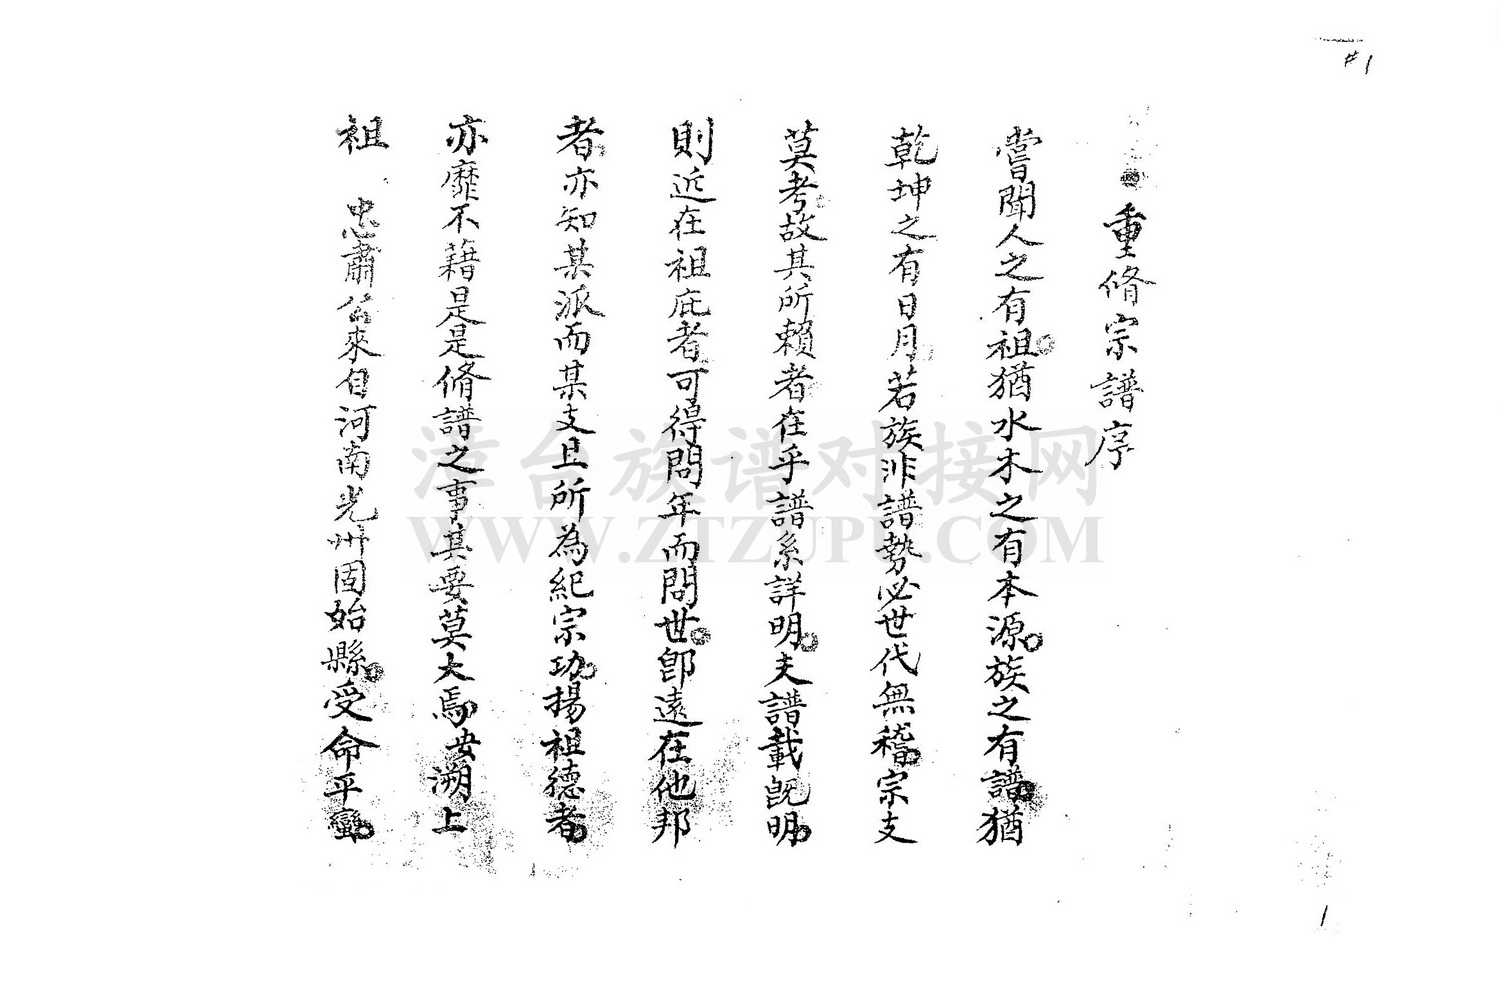 #1
重脩宗譜序
嘗聞人之有祖猶水木之有本源族之有譜猶
乾坤之有日月若族非譜勢必世代無稽宗支
莫考故其所賴者在乎譜系詳明夫譜載旣明
則近在祖庇者可得問年而問世卽遠在他邦
者亦知某派而某支且所為紀宗功揚祖德者
亦靡不藉是是脩譜之事其要莫大焉女溯上
祖 忠肅公來自河南光州固始縣受命平蠻
漳台族谱对接网
WWW.ZTZUPU.COM
1